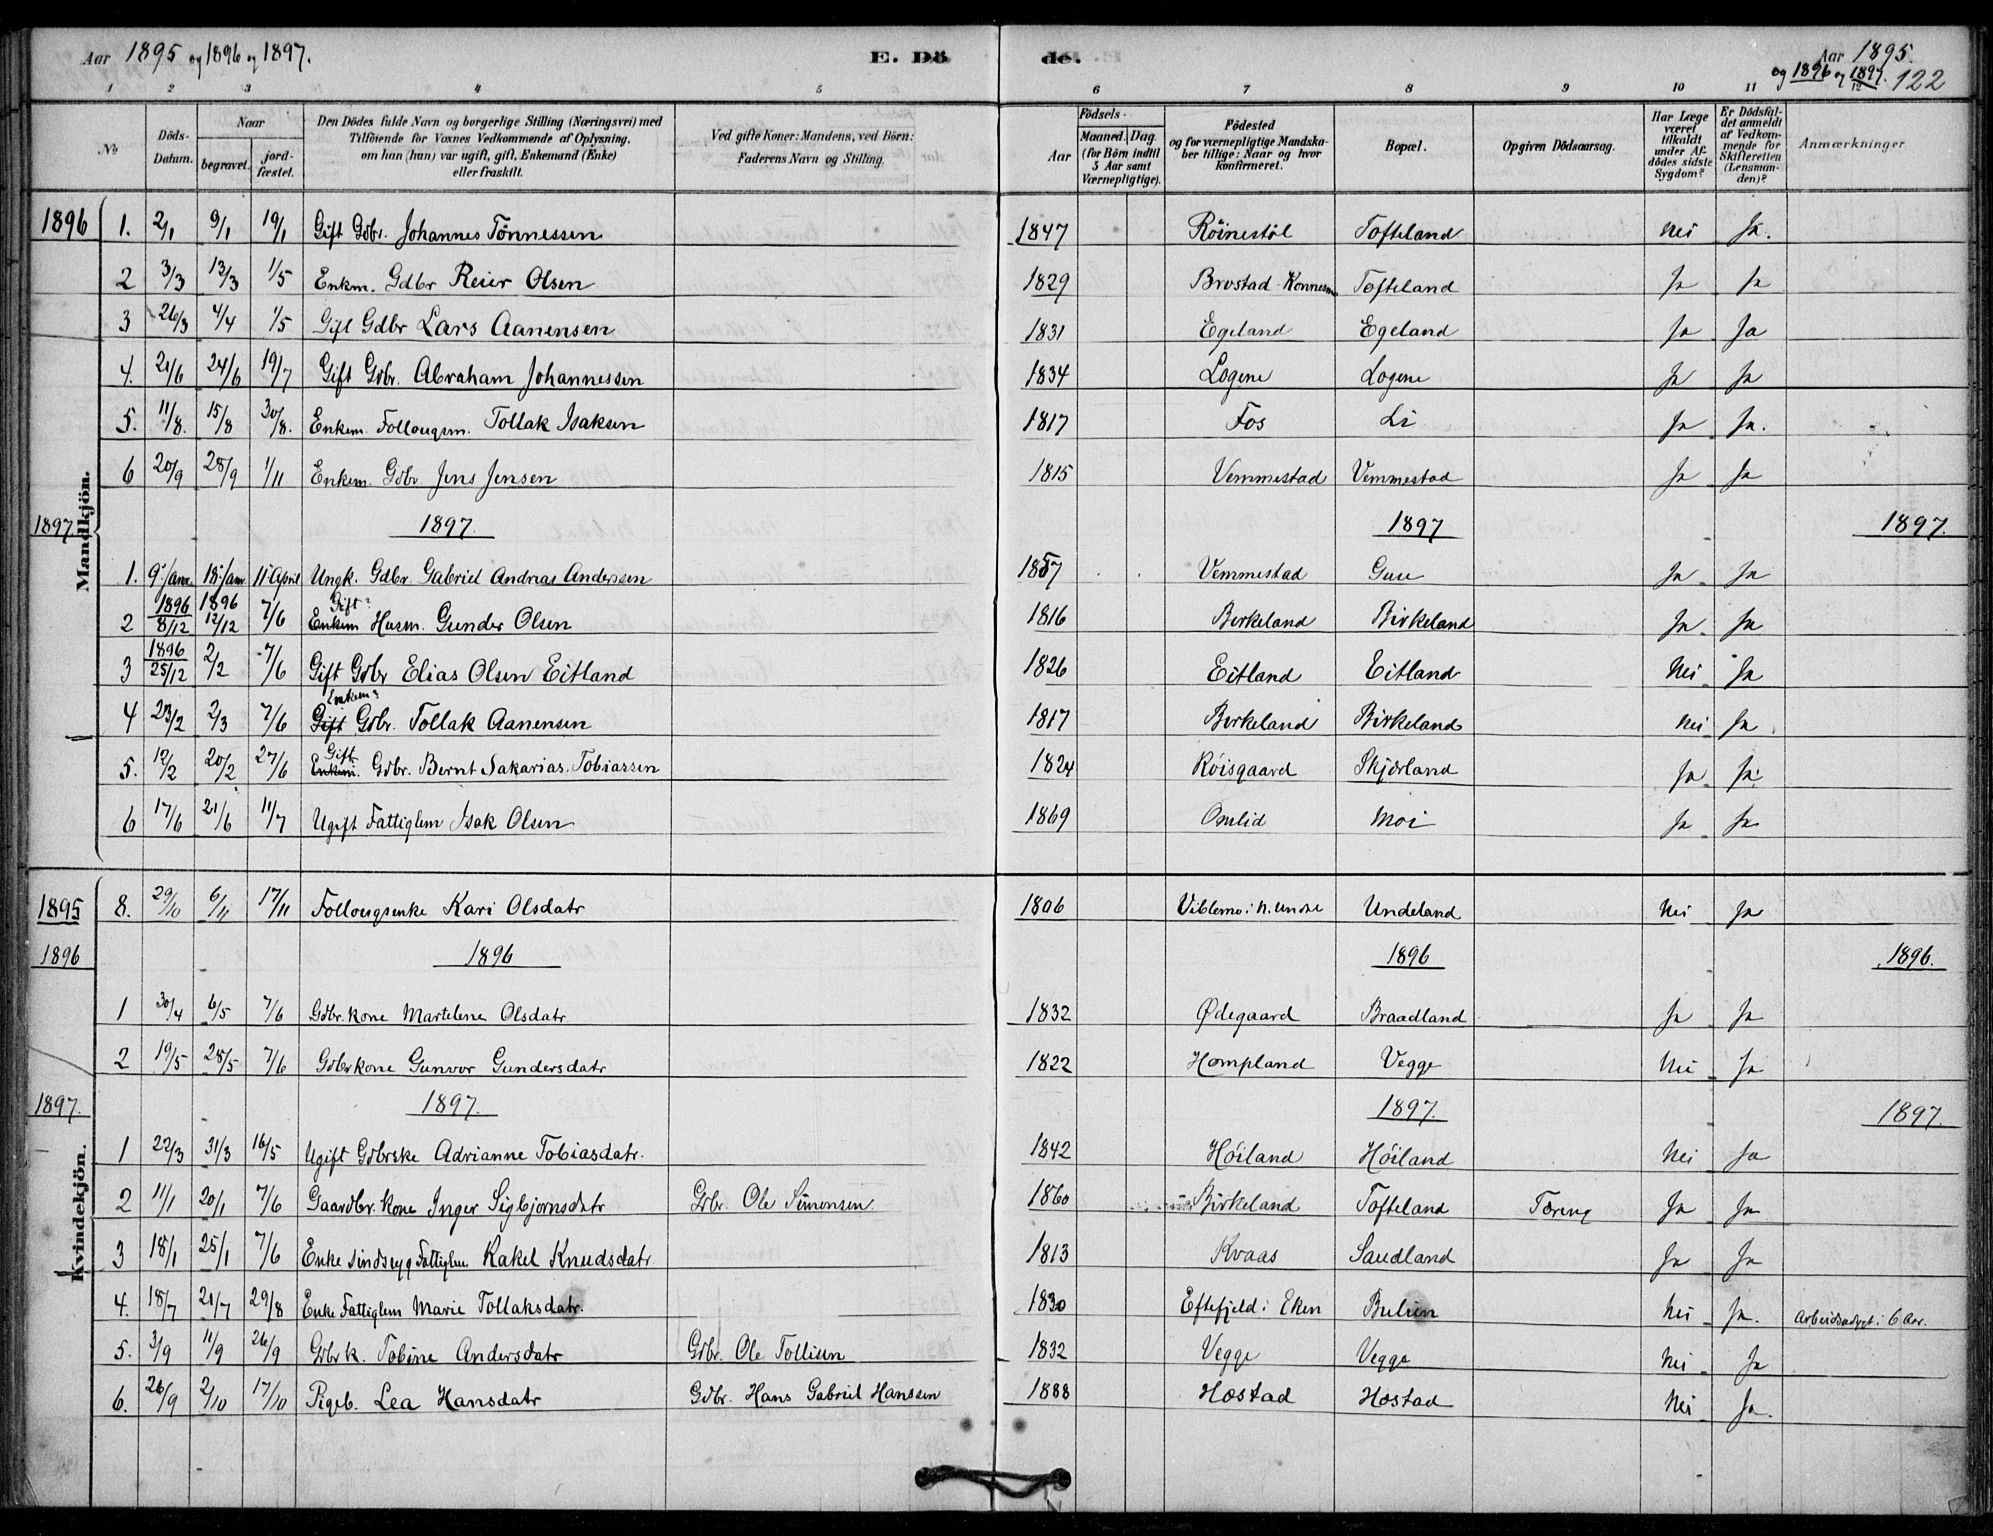 Aar 1895 og 1896 og 1897. E. Dö de. Aar 1895.
og 1896 og 1897. 122
1 2 3 4 5 6 7 8 9 10 11 12
No
Döds-Datum.
Naar
begravet.
jord-fæstet.
Den Dödes fulde Navn og borgerlige Stilling (Næringsvei) med
Tilföiende for Voxnes Vedkommende af Oplysning,
om han (hun) var ugift, gift, Enkemand (Enke)
eller fraskilt.
Ved gifte Koner: Mandens, ved Börn:
Faderens Navn og Stilling.
Födsels-
Aar
Maaned. Dag.
(for Börn indtil
5 Aar samt
Værnepligtige).
Födested
og for værnepligtige Mandska-
ber tillige: Naar og hvor
konfirmeret.
Bopæl.
Opgiven Dödsaarsag.
Har Læge
været
tilkaldt
under Af-
dödes sidste
Sygdom?
Er Dödsfal-
det anmeldt
af Vedkom-
mende for
Skifteretten
(Lensman-
den)?
Anmærkninger
Mandkjön.
1896 1. 2/1 9/1 19/1 Gift Gdbr. Johannes Tönnessen 1847 Röinestöl Tofteland Nei Ja.
2 3/3 13/3 1/5 Enkm. Gdbr Reier Olsen 1829 Brostad Tofteland Ja Ja
3 26/3 4/4 1/5 Gift Gdbr Lars Aanensen 1831 Egeland Egeland Ja Ja
4. 21/6 24/6 19/7 Gift Gdbr. Abraham Johannessen 1834 Logene Logene Ja Ja
5. 11/8. 15/8 30/8. Enkem. Follougsm. Tollak Isaksen 1817 Fos Li Ja Ja.
6 20/9 28/9 1/11 Enkem. Gdbr. Jens Jensen 1815 Vemmestad Vemmestad Ja Ja
1897. 1897. 1897 1897.
1. 9/Janr. 18/Janr 11 April Ungk. Gdbr. Gabriel Andreas Andersen 1857 Vemmestad Guse Ja Ja
2 1896 8/12 1896 12/12 7/6 Enkem Gift? Husm. Gunder Olsen 1816 Birkeland Birkeland Ja Ja
3 1896 25/12 2/2 7/6 Gift Gdbr Elias Olsen Eitland 1826 Eitland Eitland Nei Ja
4 23/2 2/3 7/6 Gift Enkem? Gdbr. Tollak Aanensen 1817 Birkeland Birkeland Nei Ja
5. 12/2 20/2 27/6 Enkem. Gift Gdbr. Bernt Sakarias Tobiassen 1824 Röisgaard Skjörland Ja Ja
6 17/6 21/6 11/7 Ugift Fattiglem Isak Olsen 1869 Omlid Moi Ja Ja
Kvindekjön.
1895 8. 29/10 6/11 17/11 Follougsenke Kari Olsdatr 1806 Viblemo i N. Undal Undeland Nei Ja
1896 1896 1896 1896.
1 30/4 6/5 7/6 Gdbr. kone Martelene Olsdatr 1832 Ödegaard Braadland Ja Ja
2 19/5 28/5 7/6 Gdbrkone Gunvor Gundersdatr 1822 Hompland Vegge Nei Ja
1897. 1897. 1897. 1897.
1 22/3 31/3 16/5 Ugift Gdbrske Adrianne Tobiasdatr. 1842 Höiland Höiland Nei Ja
2 11/1 20/1 7/6 Gaardbr. kone Inger Sigbjornsdatr Gdbr. Ole Simonsen 1860 Birkeland Tofteland Tæring Ja Ja
3 18/1 25/1 7/6 Enke Sindssyg Fattiglem Rakel Knudsdatr 1813 Kvaas Saudland Ja Ja
4. 18/7 21/7 29/8 Enke Fattiglem Marie Tollaksdatr. 1830 Eftefjeld i Eken Buluen Nei Ja. Arbeidsudygt i 6 Aar.
5. 3/9 11/9 26/9 Gdbr k. Tobine Andersdatr Gdbr. Ole Tollisen 1832 Vegge Vegge Nei Ja
6. 26/9 2/10 17/10 Pigeb. Lea Hansdatr Gdbr. Hans Gabriel Hanssen 1888 Hæstad Hæstad Nei Ja.